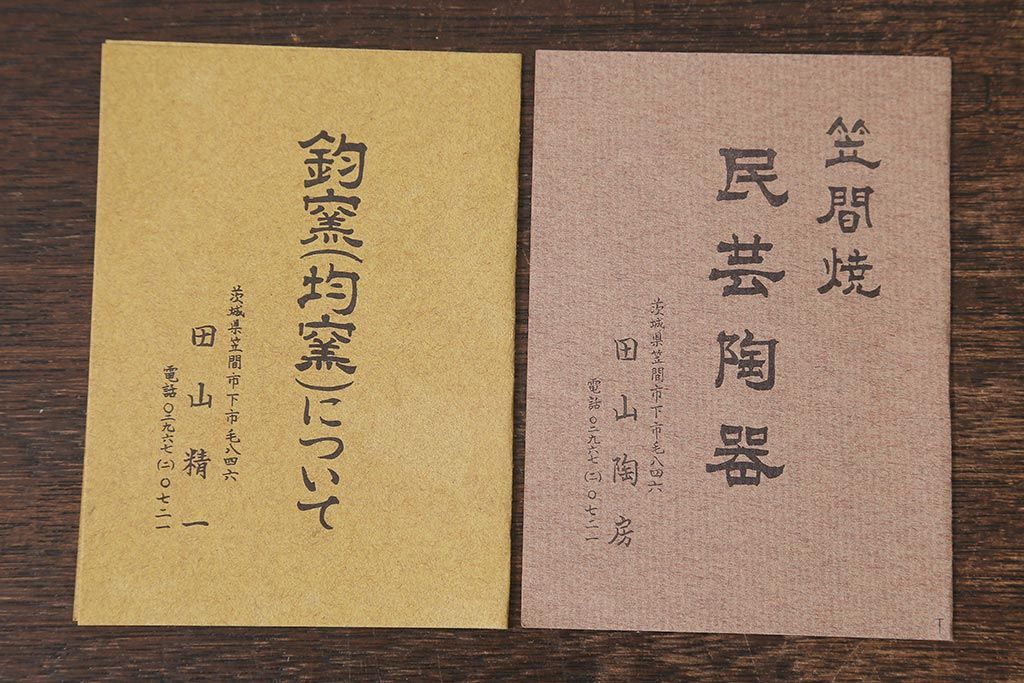 鈞窯(均窯)について
茨城県笠間市下市毛八四六
田山精一
電話〇二九六七(二)〇七二一
笠間焼
民芸陶器
茨城県笠間市下市毛八四六
田山陶房
電話〇二九六七(二)〇七二一
T